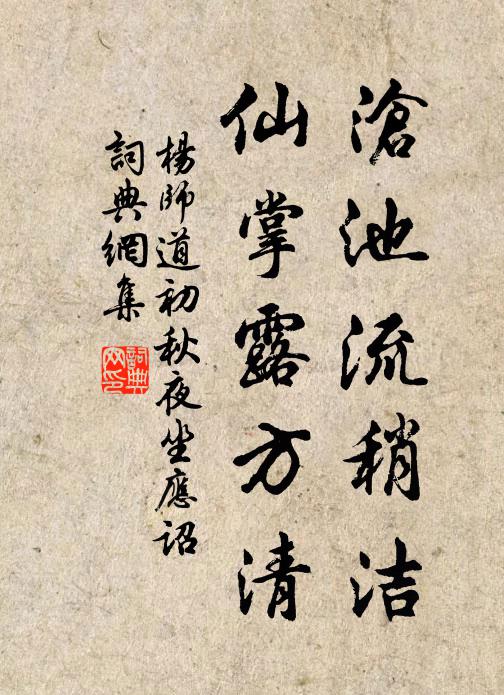 滄池流稍洁
仙掌露方清
楊師道初秋夜坐應詔
詞典網集
詞典网印